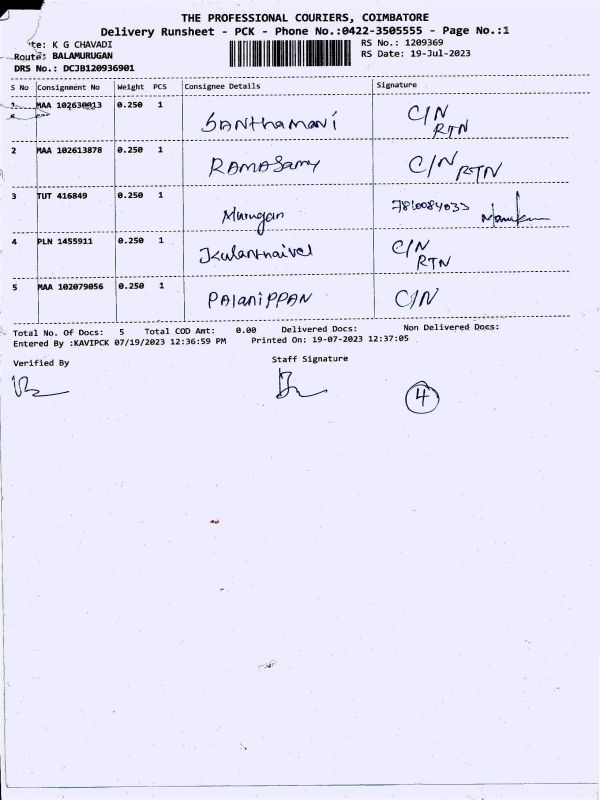 THE PROFESSIONAL COURIERS, COIMBATORE
Delivery Runsheet - PCK - Phone No.:0422-3505555 - Page No.:1
te: K G CHAVADI RS No.: 1209369
Route: BALAMURUGAN RS Date: 19-Jul-2023
DRS No.: DCJB120936901
S No Consignment No Weight PCS Consignee Details Signature
1 MAA 102630013 0.250 1 SANthaMani C/N RTN
2 MAA 102613878 0.250 1 RAMASamy C/N RTN
3 TUT 416849 0.250 1 Murugan 7810084033
4 PLN 1455911 0.250 1 Kulanthaivel C/N RTN
5 MAA 102079056 0.250 1 PAlaniPPAN C/N
Total No. Of Docs: 5 Total COD Amt: 0.00 Delivered Docs: Non Delivered Docs:
Entered By :KAVIPCK 07/19/2023 12:36:59 PM Printed On: 19-07-2023 12:37:05
Verified By Staff Signature
4